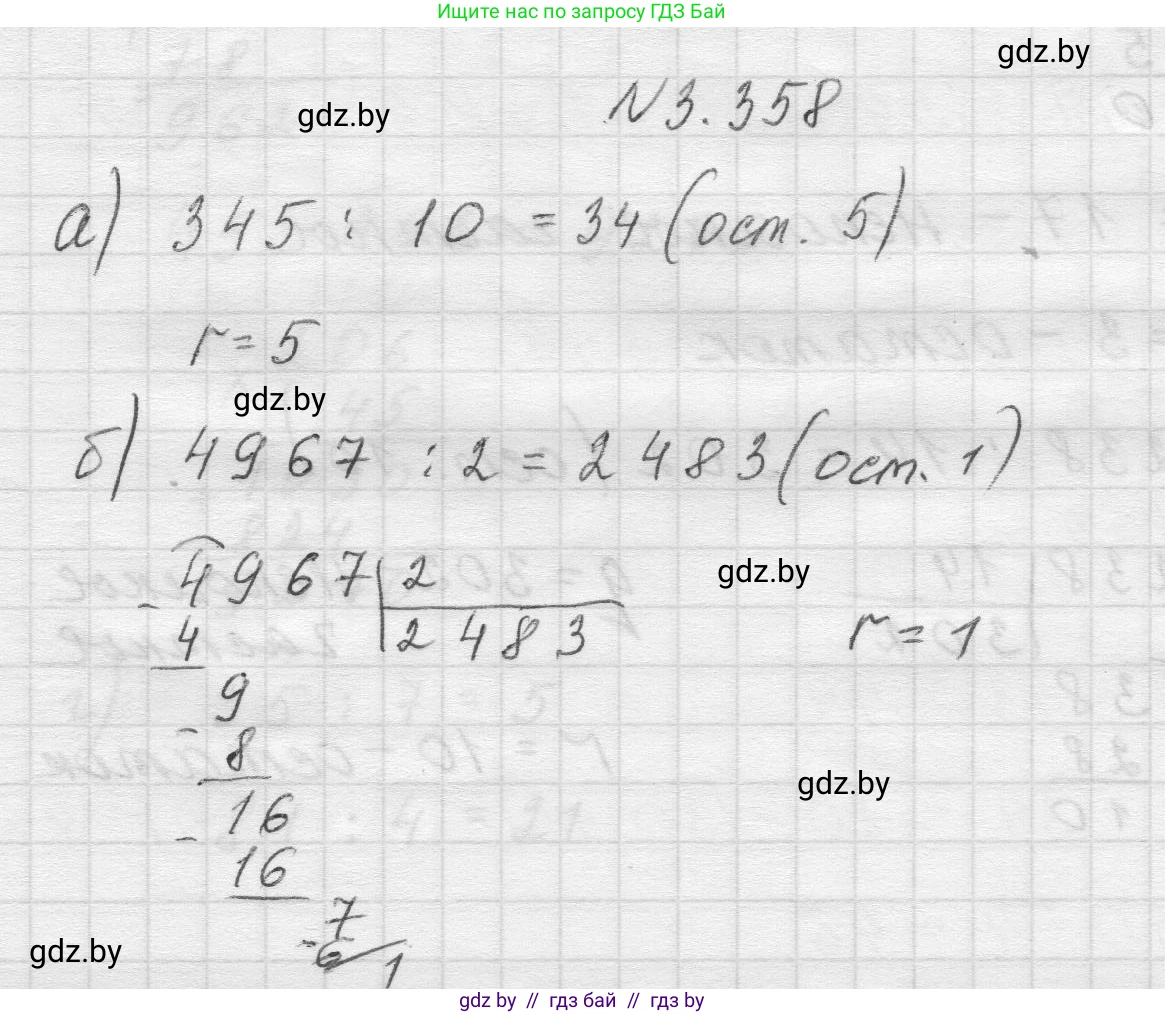 Ищите нас по запросу ГДЗ Бай
gdz.by
gdz.by
N 3.358
а) 345 : 10 = 34 (ост. 5)
r = 5
gdz.by
б) 4967 : 2 = 2483 (ост. 1)
4967 | 2
gdz.by
- 4 2483
r = 1
9
- 8
gdz.by
16
- 16
7
gdz.by
- 6
1
gdz by // гдз бай // gdz by